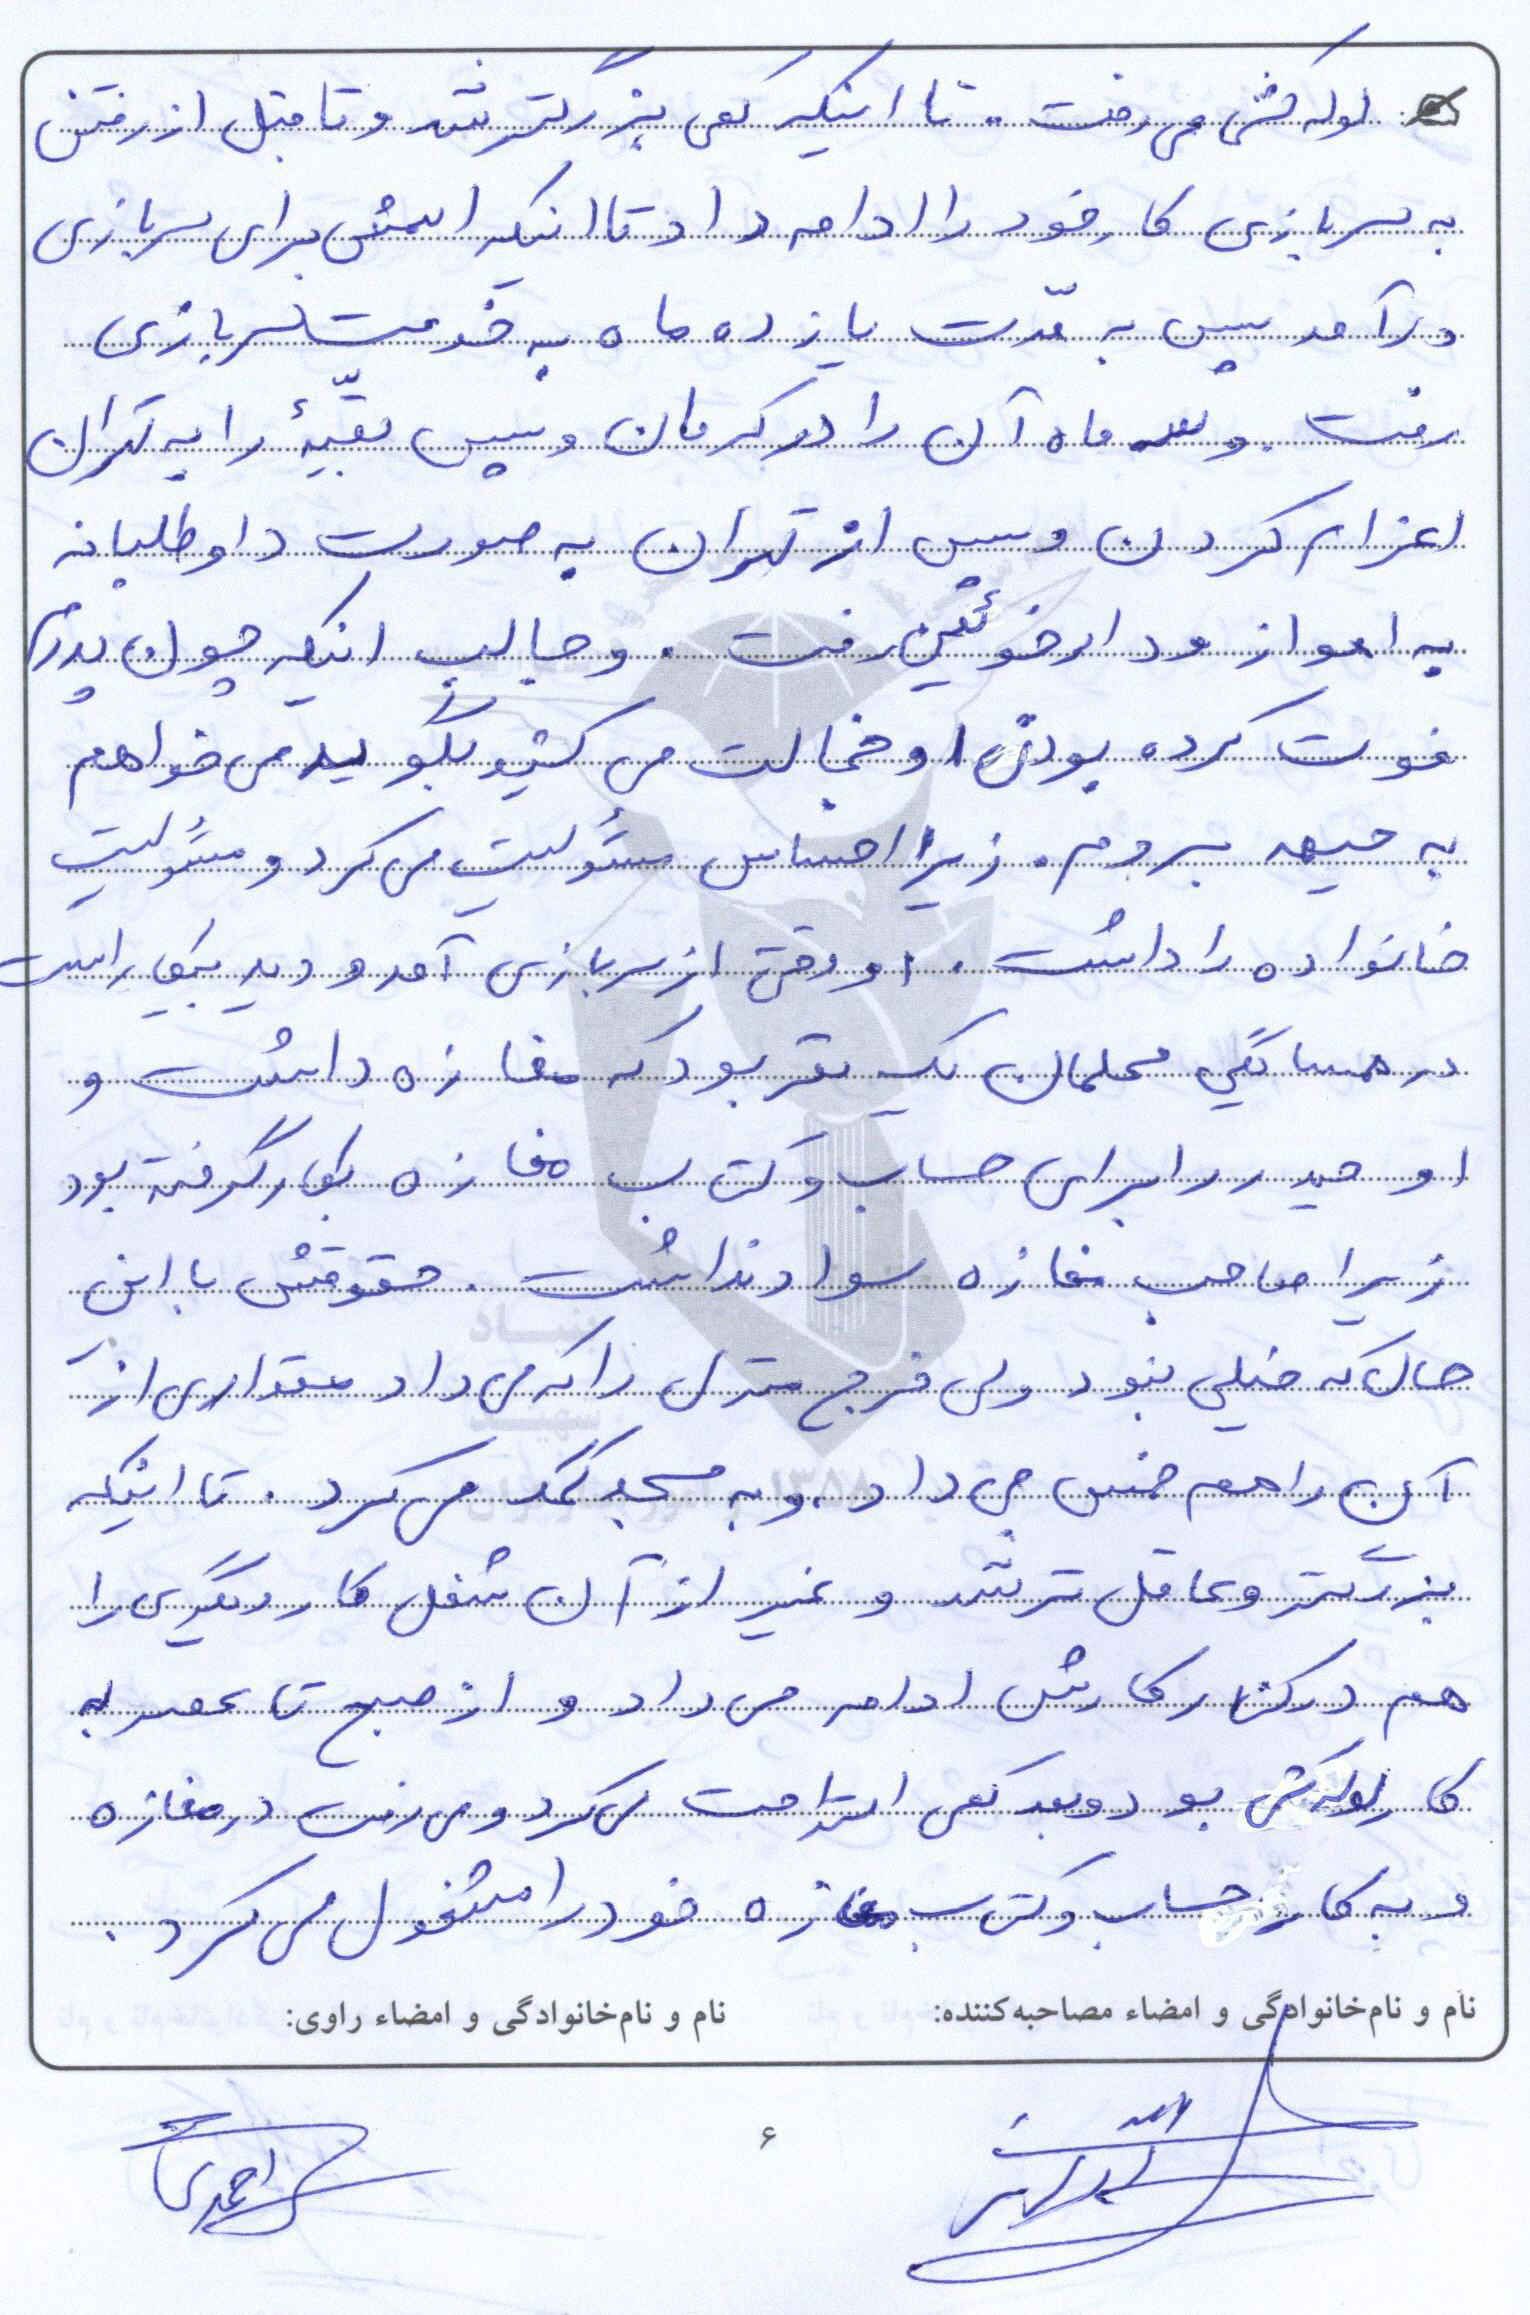 لوله کشی می رفت. تا اینکه کمی بزرگتر شد و تا قبل از رفتن
به سربازی کار خود را ادامه داد تا اینکه اسمش برای سربازی
درآمد سپس به مدّت یازده ماه به خدمت سربازی
رفت. و ماه آن را در کرمان و سپس بقیّۀ را به تهران
اعزام کردن و سپس از تهران به صورت داوطلبانه
به اهواز و دارخوئین رفت. و جالب اینکه چون پدرم
فوت کرده بودن او خجالت می کشید بگوید می خواهم
به جبهه بروم. زیرا احساس مسئولیت می کرد و مسئولیت
خانواده را داشت. او وقتی از سربازی آمد و دید بیکار است
در همسایگی محلمان یک نفر بود که مغازه داشت و
او حیدر را برای حساب و کتاب مغازه بکار گرفته بود
زیرا صاحب مغازه سواد نداشت. حقوقش با این
حال که خیلی نبود ولی خرج منزل را که می داد مقداری از
آن را هم خمس می داد، و به مسجد کمک می کرد. تا اینکه
بزرگتر و عاقل تر شد و غیر از آن شغل کار دیگری را
هم در کنار کارش ادامه می داد و از صبح تا عصر به
کار لوله کشی بود و بعد کمی استراحت می کرد و می رفت در مغازه
و به کار حساب و کتاب مغازه خود را مشغول می کرد.
نام و نام‌خانوادگی و امضاء مصاحبه‌کننده: نام و نام‌خانوادگی و امضاء راوی:
۶
احمدی